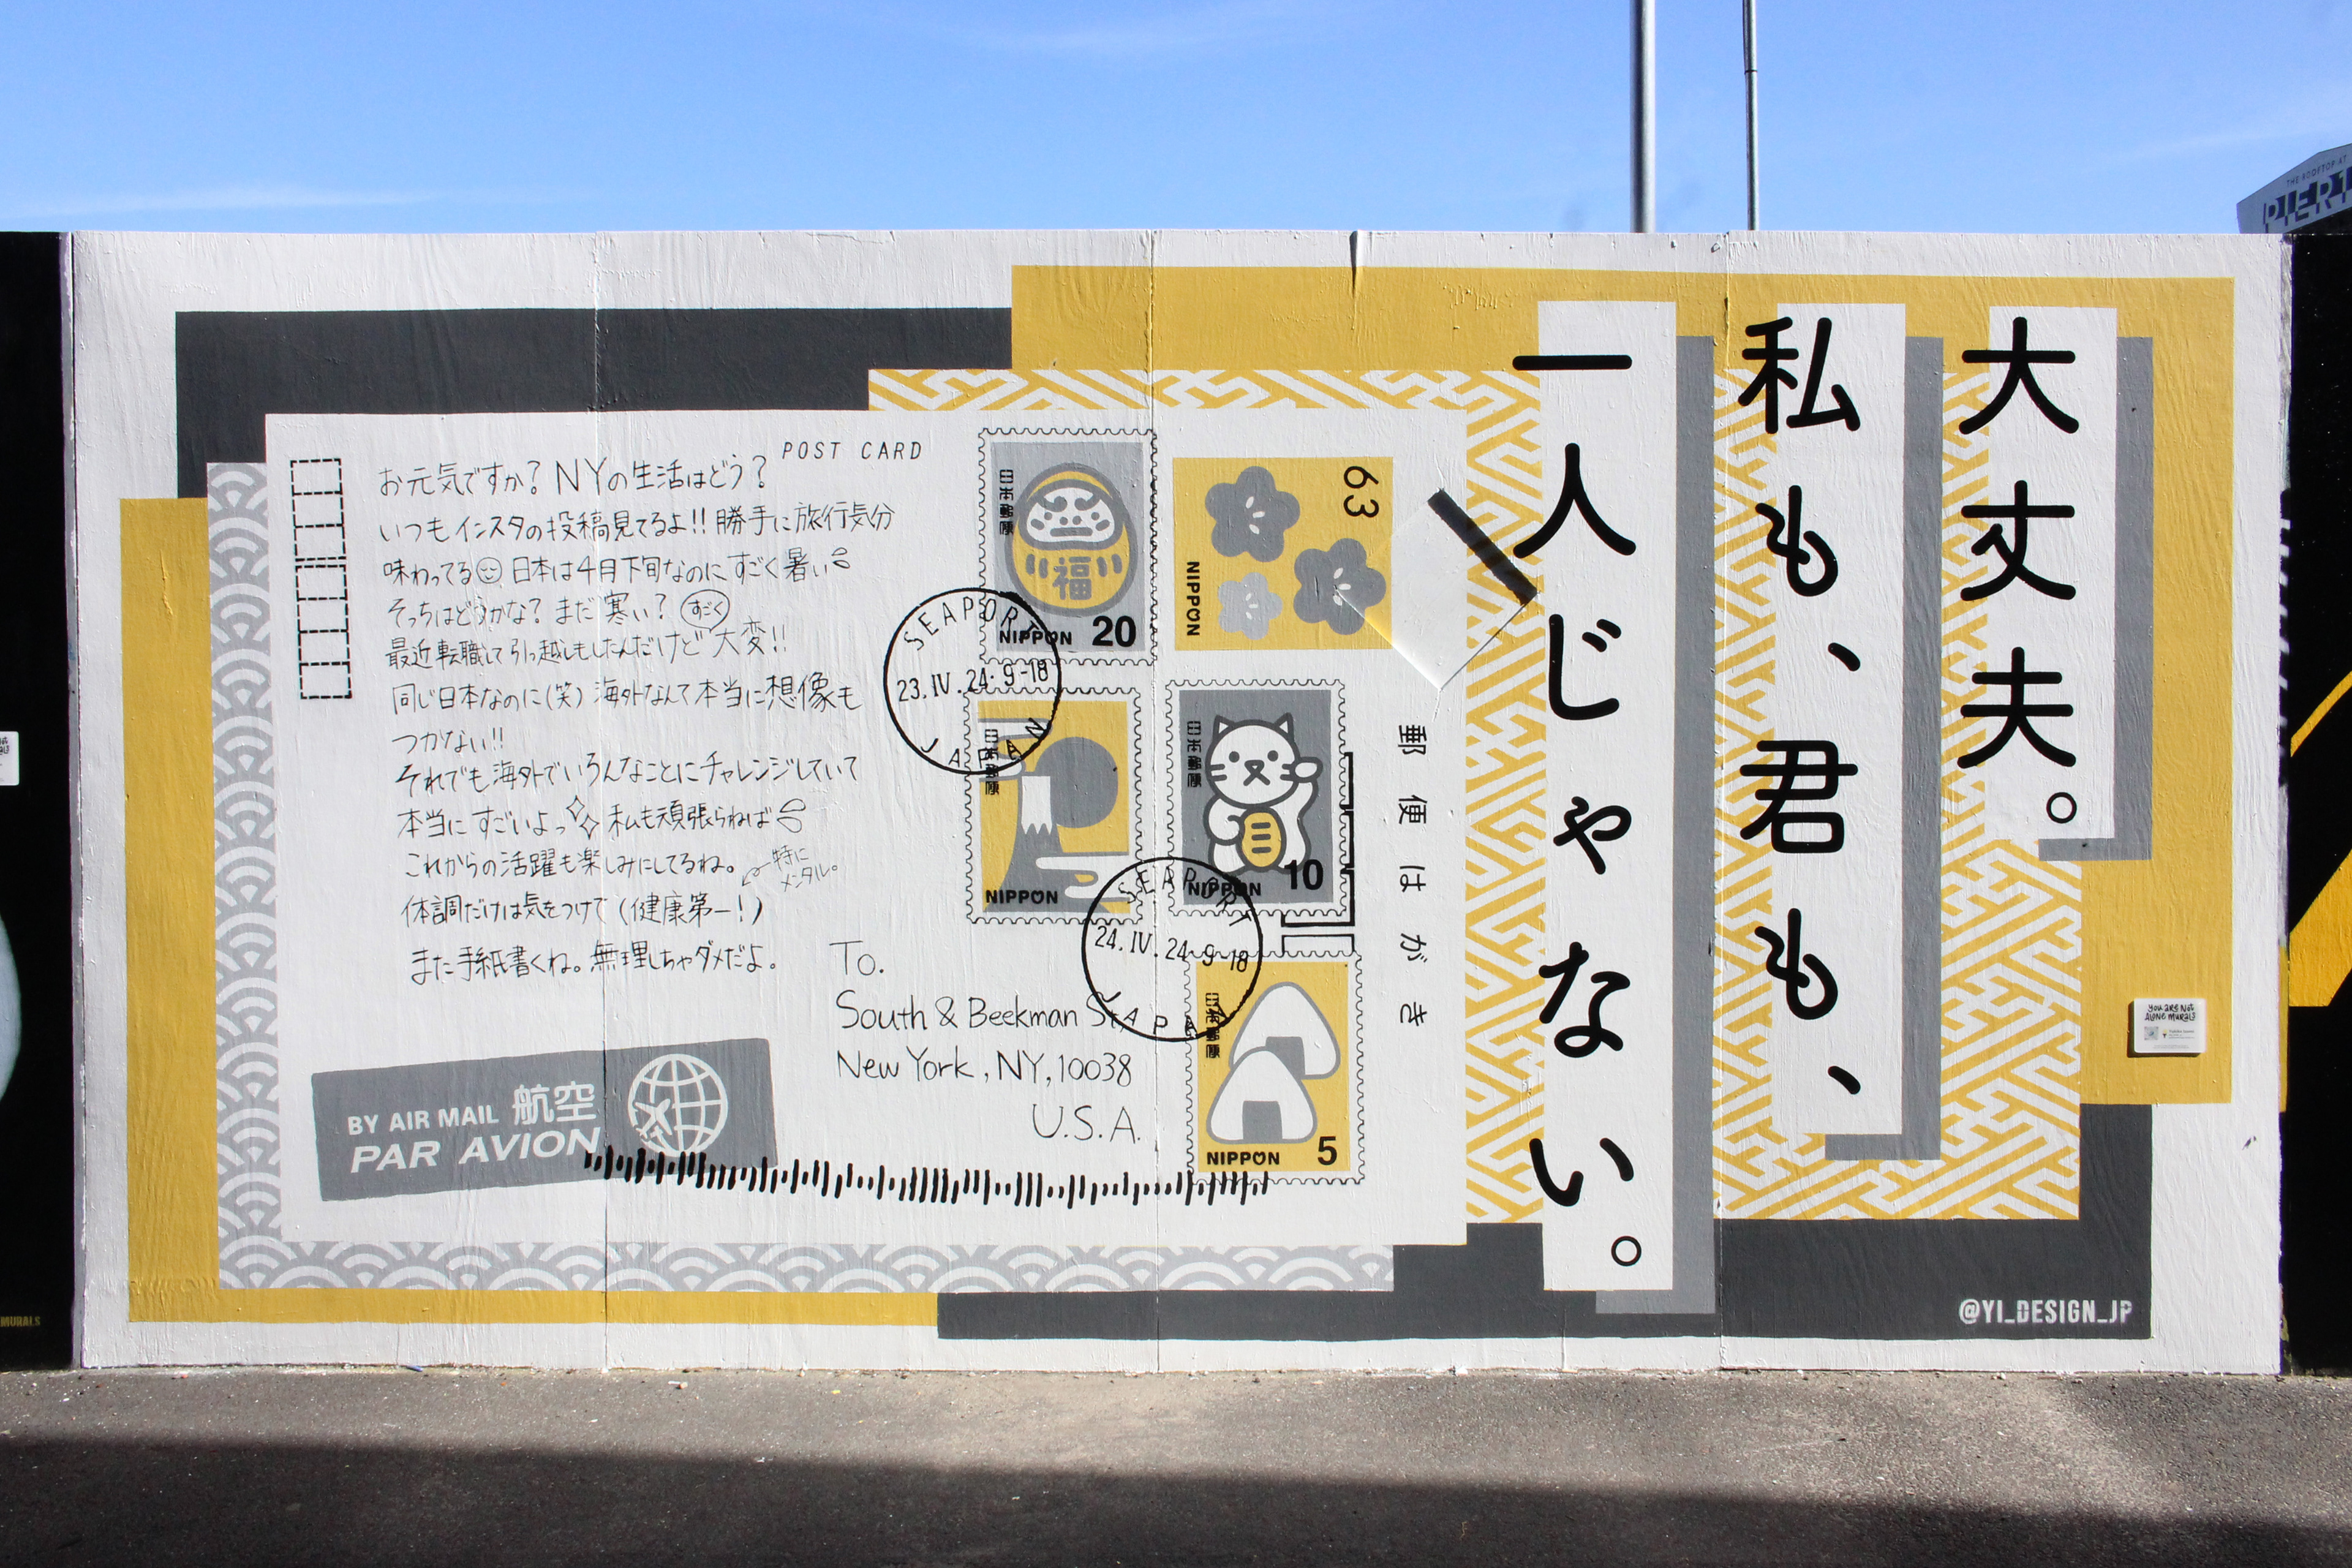 THE ROOFTOP AT
大丈夫。
私も、君も、
一人じゃない。
POST CARD
お元気ですか？NYの生活はどう？
いつもインスタの投稿見てるよ!!勝手に旅行気分
味わってる 日本は4月下旬なのにすごく暑い
そっちはどうかな？まだ寒い？
すごく
最近転職して引っ越しもしたんだけど大変!!
同じ日本なのに(笑)海外なんて本当に想像も
つかない!!
それでも海外でいろんなことにチャレンジしていて
本当にすごいよっ 私も頑張らねば
これからの活躍も楽しみにしてるね。
特に
メンタル。
体調だけは気をつけて(健康第一!)
また手紙書くね。無理しちゃダメだよ。
To.
South & Beekman St,
New York, NY, 10038
U.S.A.
BY AIR MAIL 航空
PAR AVION
日本郵便
福
NIPPON 20
63
NIPPON
SEAPORT
23.IV.24.9-18
JAPAN
日本郵便
NIPPON
日本郵便
NIPPON 10
SEAPORT
24.IV.24.9-18
JAPAN
日本郵便
NIPPON 5
郵便はがき
You are Not
Alone Murals
@YI_DESIGN_JP
MURALS